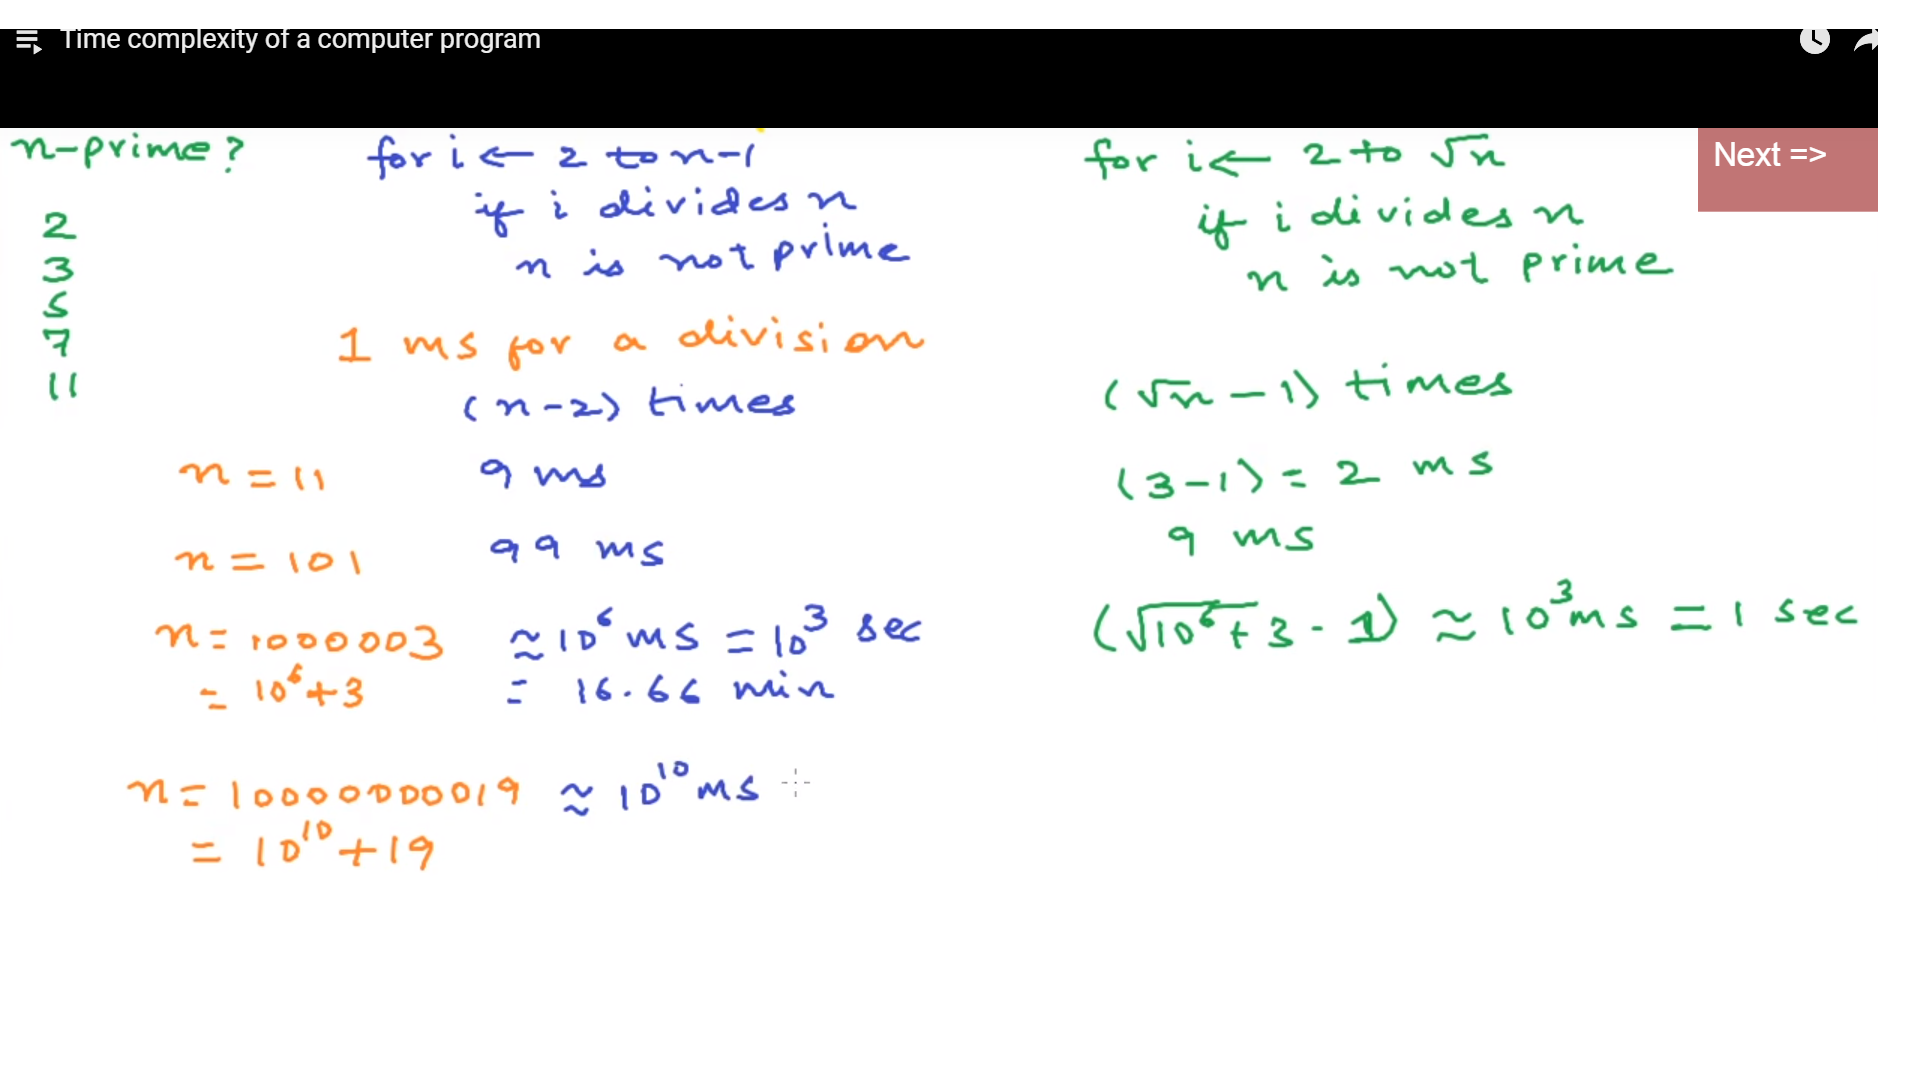 Time complexity of a computer program
Next =>
n-prime?
2
3
5
7
11
for i ← 2 to n-1
if i divides n
n is not prime
1 ms for a division
(n-2) times
n = 11 9 ms
n = 101 99 ms
n = 1000003 ≈ 10⁶ ms = 10³ sec
= 10⁶+3 = 16.66 min
n = 10000000019 ≈ 10¹⁰ ms
= 10¹⁰+19
for i ← 2 to √n
if i divides n
n is not prime
(√n - 1) times
(3-1) = 2 ms
9 ms
(√10⁶+3 - 1) ≈ 10³ ms = 1 sec